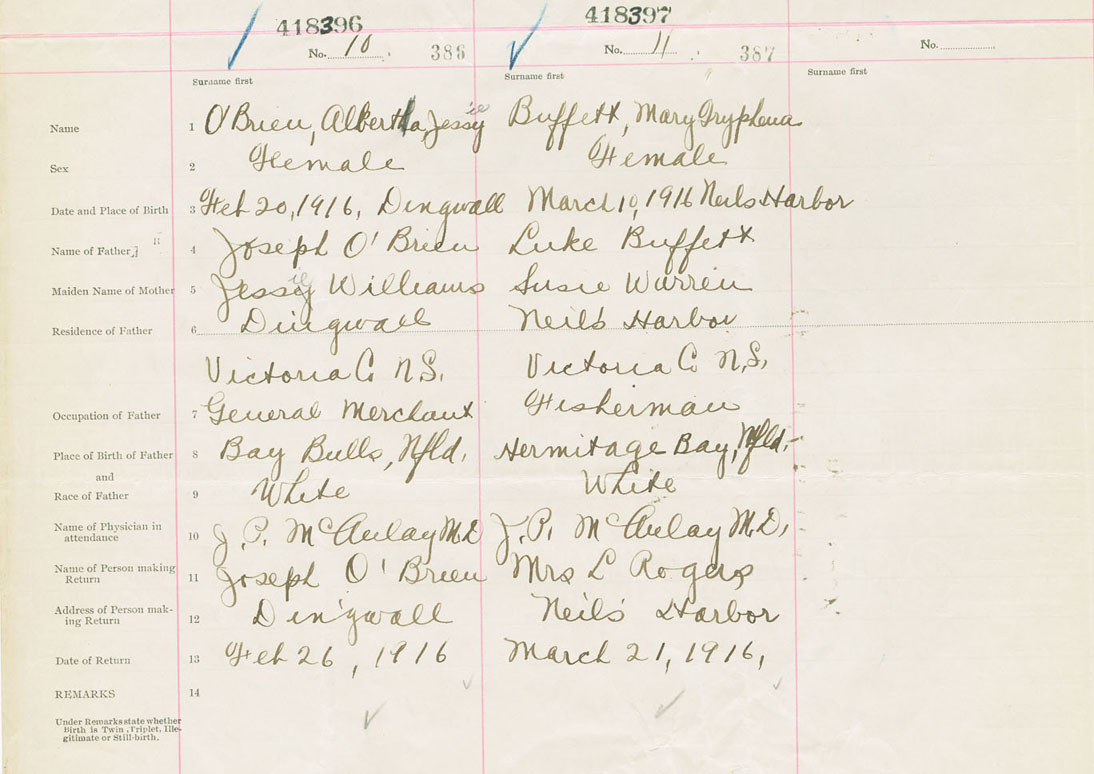 418396 418397
No. 10 386 No. 11 387 No.
Surname first Surname first Surname first
Name 1 O'Brien, Albertha, Jessie Buffett, Mary Tryphena
Sex 2 Female Female
Date and Place of Birth 3 Feb 20, 1916, Dingwall March 10, 1916 Neils Harbor
Name of Father 4 Joseph O'Brien Luke Buffett
Maiden Name of Mother 5 Jessie Williams Susie Warren
Residence of Father 6 Dingwall Neil's Harbor
Victoria Co N.S. Victoria Co N.S.
Occupation of Father 7 General Merchant Fisherman
Place of Birth of Father 8 Bay Bulls, Nfld. Hermitage Bay, Nfld.
and
Race of Father 9 White White
Name of Physician in
attendance 10 J. P. McAulay M.D J. P. McAulay M.D.
Name of Person making
Return 11 Joseph O'Brien Mrs L Rogers
Address of Person mak-
ing Return 12 Dingwall Neil's Harbor
Date of Return 13 Feb 26, 1916 March 21, 1916,
REMARKS 14
Under Remarks state whether
Birth is Twin, Triplet, Ille-
gitimate or Still-birth.